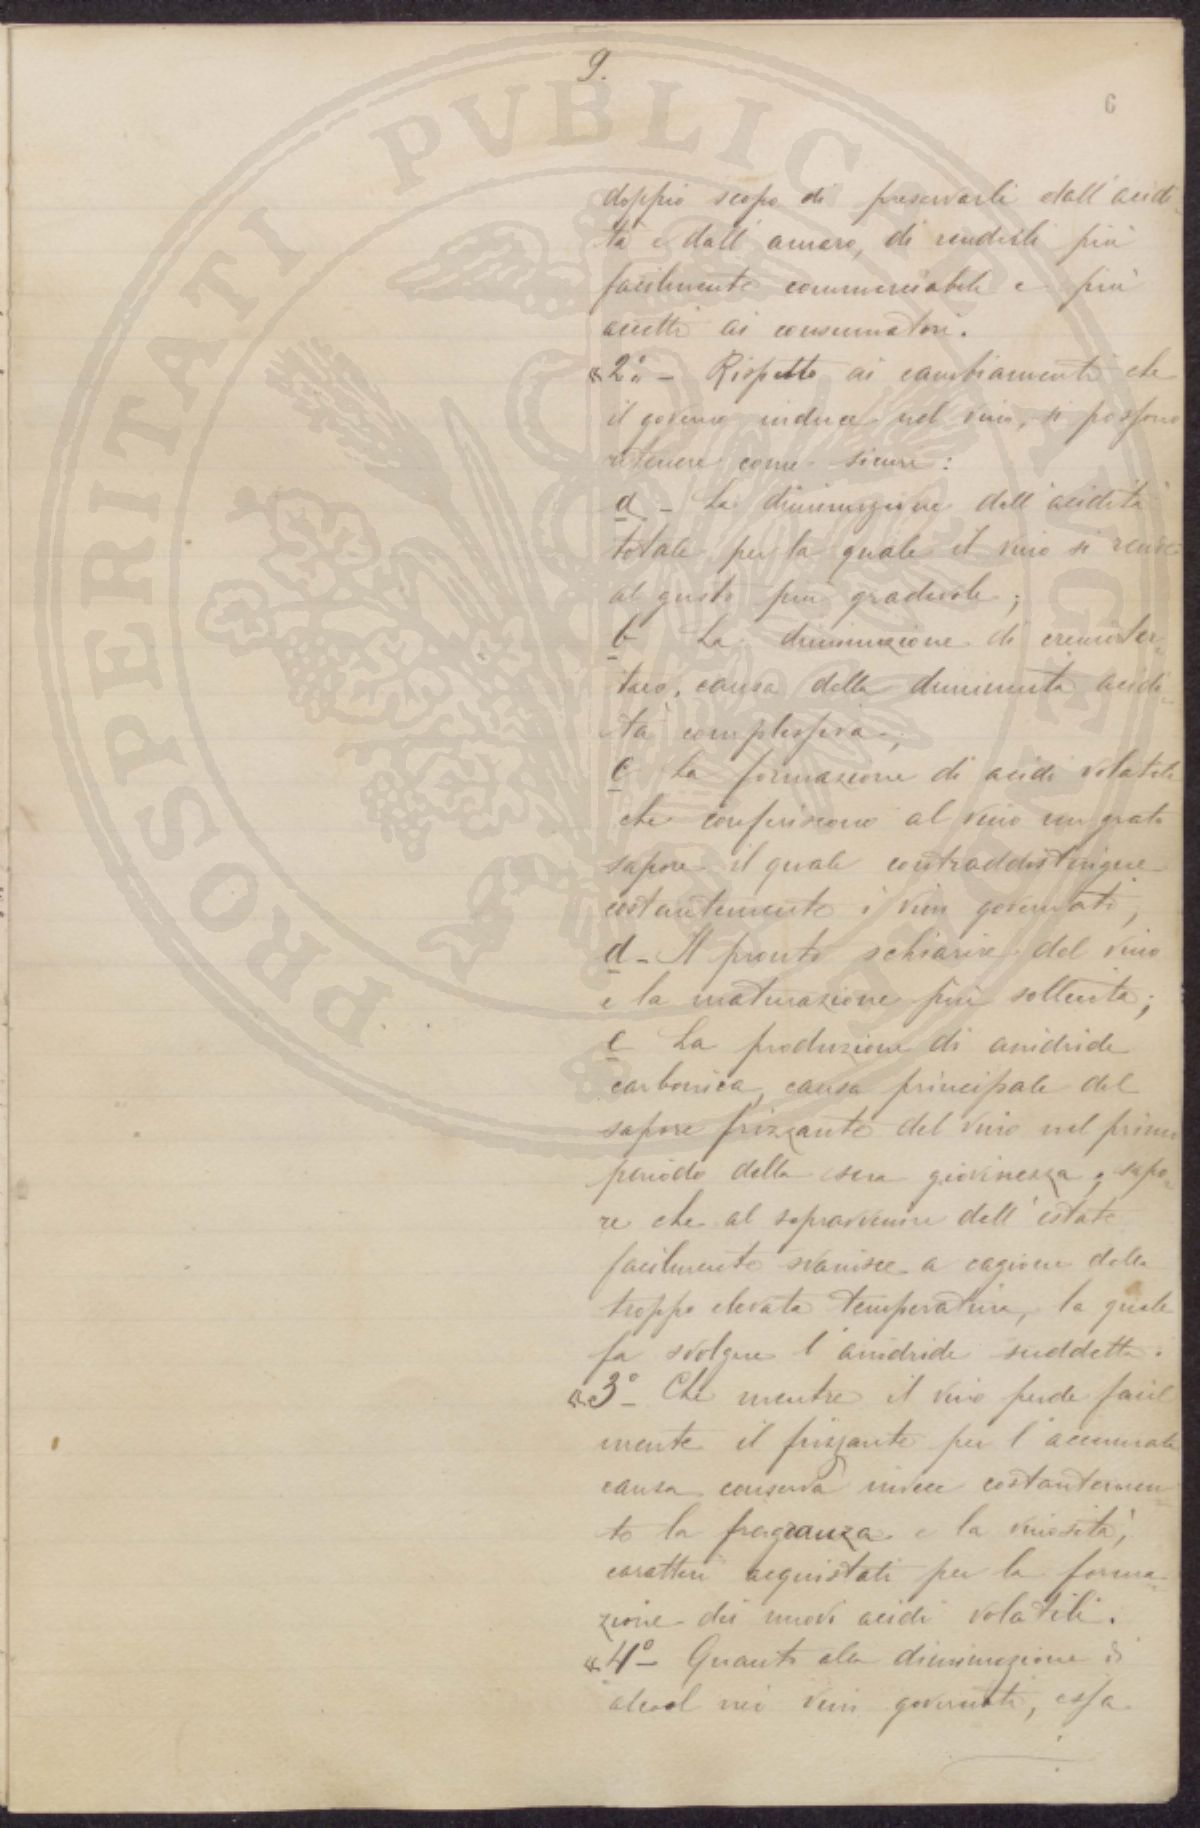 9.
6
doppio scopo di preservarli dall'acidi-
tà e dall'amaro, di renderli più
facilmente commerciabili e più
accetti ai consumatori.
"2.° - Rispetto ai cambiamenti che
il governo induce nel vino, si possono
ritenere come sicuri:
a - La diminuzione dell'acidità
totale per la quale il vino si rende
al gusto più gradevole;
b La diminuzione di cremor tar-
taro, causa della diminuita acidi-
tà complessiva;
c La formazione di acidi volatili
che conferiscono al vino un grato
sapore il quale contraddistingue
costantemente i vini governati;
d - Il pronto schiarire del vino
e la maturazione più sollecita;
e La produzione di anidride
carbonica, causa principale del
sapore frizzante del vino nel primo
periodo della sua giovinezza, sapo-
re che al sopravvenire dell'estate
facilmente svanisce a cagione della
troppo elevata temperatura, la quale
fa svolgere l'anidride suddetta.
"3° - Che mentre il vino perde facil
mente il frizzante per l'accennata
causa conserva invece costantemen-
te la fragranza e la vinosità,
caratteri acquistati per la forma-
zione dei nuovi acidi volatili.
"4° - Quanto alla diminuzione di
alcool nei vini governati, essa
PROSPERITATI PVBLICAE AVGENDAE